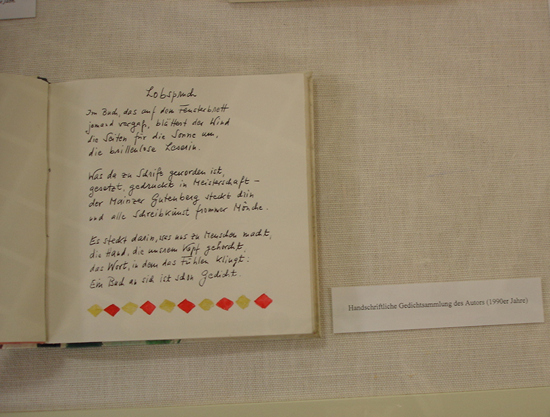 Lobspruch
Im Buch, das auf dem Fensterbrett
jemand vergaß, blättert der Wind
die Seiten für die Sonne um,
die brillenlose Leserin.
Was da zu Schrift geworden ist,
gesetzt, gedruckt in Meisterschaft –
der Mainzer Gutenberg steckt drin
und alle Schreibkunst frommer Mönche.
Es steckt darin, was uns zu Menschen macht,
die Hand, die unsrem Kopf gehorcht,
das Wort, in dem das Fühlen klingt:
Ein Buch an sich ist schon Gedicht.
Handschriftliche Gedichtsammlung des Autors (1990er Jahre)